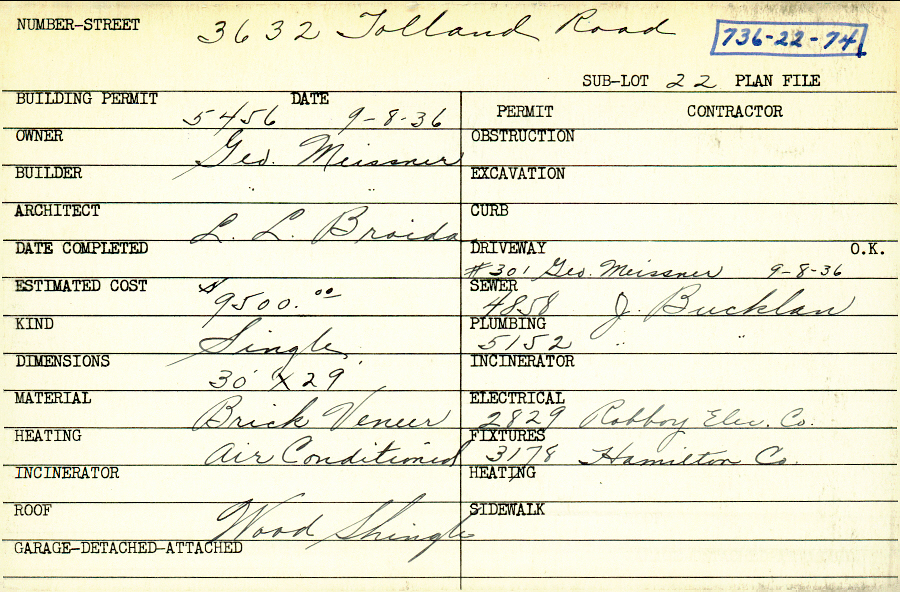 NUMBER-STREET 3632 Tolland Road 736-22-74
SUB-LOT 22 PLAN FILE
BUILDING PERMIT 5456 DATE 9-8-36
OWNER Geo. Meissner
BUILDER " "
ARCHITECT L. L. Broida
DATE COMPLETED
ESTIMATED COST $9500.00
KIND Single
DIMENSIONS 30' X 29'
MATERIAL Brick Veneer
HEATING Air Conditioned
INCINERATOR
ROOF Wood Shingle
GARAGE-DETACHED-ATTACHED
PERMIT CONTRACTOR
OBSTRUCTION
EXCAVATION
CURB
DRIVEWAY O.K.
#301 Geo. Meissner 9-8-36
SEWER
4858 J. Bucklan
PLUMBING
5152 " "
INCINERATOR
ELECTRICAL
2829 Robboy Elec. Co.
FIXTURES
3178 Hamilton Co.
HEATING
SIDEWALK